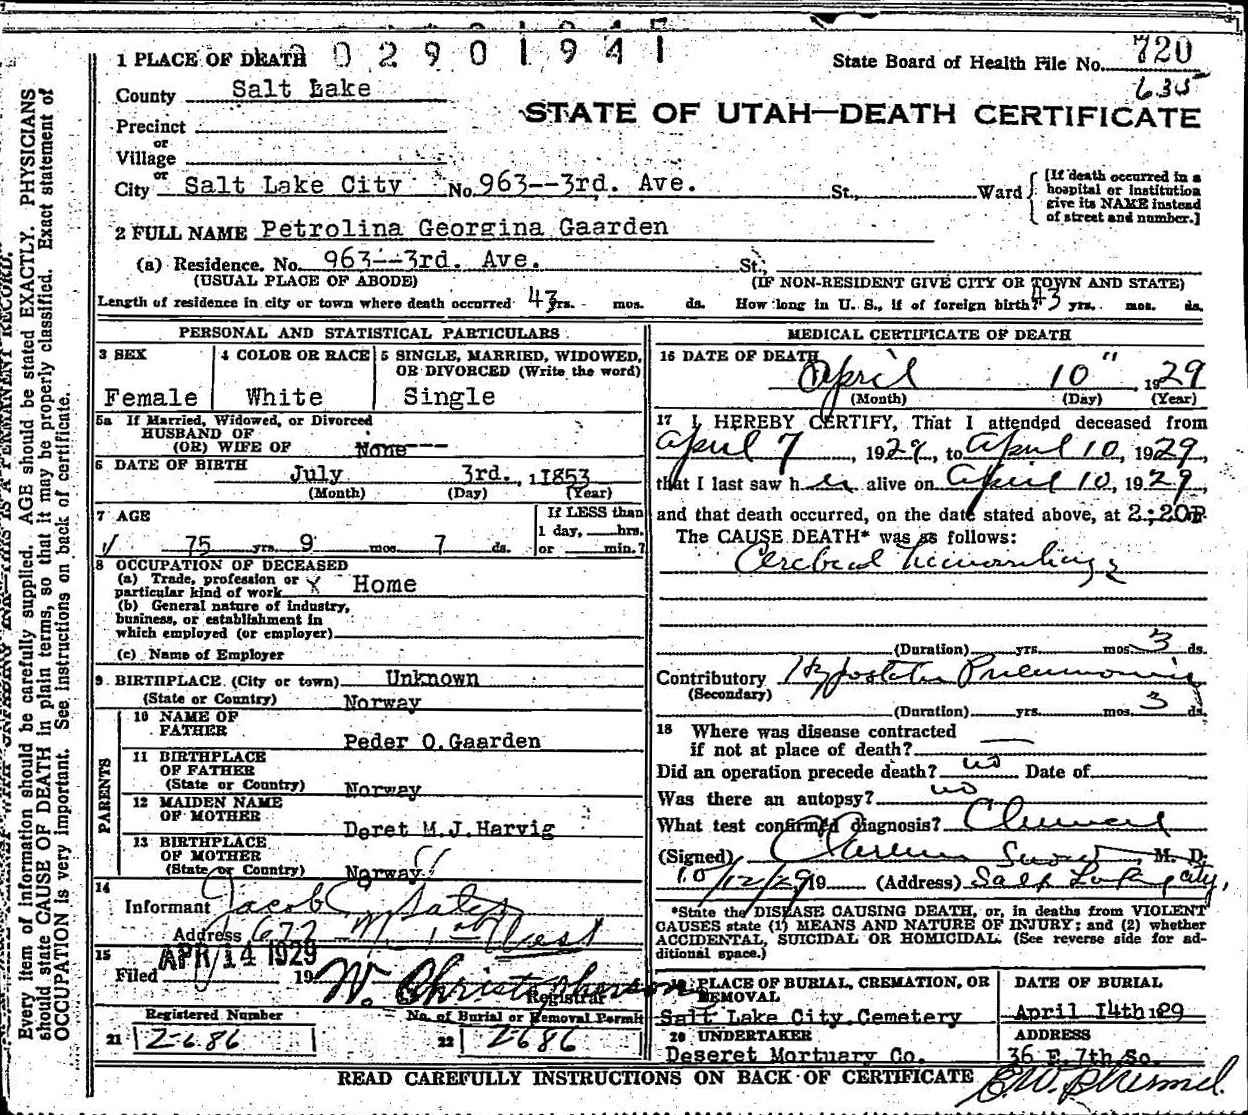 02901941
1 PLACE OF DEATH
State Board of Health File No. 720
635
County Salt Lake
STATE OF UTAH—DEATH CERTIFICATE
Precinct
or
Village
or
City Salt Lake City No. 963--3rd. Ave. St., Ward
[If death occurred in a hospital or institution give its NAME instead of street and number.]
2 FULL NAME Petrolina Georgina Gaarden
(a) Residence. No. 963--3rd. Ave. St.,
(USUAL PLACE OF ABODE) (IF NON-RESIDENT GIVE CITY OR TOWN AND STATE)
Length of residence in city or town where death occurred 43 yrs. mos. ds. How long in U. S., if of foreign birth? 43 yrs. mos. ds.
PERSONAL AND STATISTICAL PARTICULARS
3 SEX 4 COLOR OR RACE 5 SINGLE, MARRIED, WIDOWED,
OR DIVORCED (Write the word)
Female White Single
5a If Married, Widowed, or Divorced
HUSBAND OF
(OR) WIFE OF None---
6 DATE OF BIRTH July 3rd., 1853
(Month) (Day) (Year)
7 AGE If LESS than
1 day, hrs.
75 yrs. 9 mos. 7 ds. or min.?
8 OCCUPATION OF DECEASED
(a) Trade, profession or
particular kind of work x Home
(b) General nature of industry,
business, or establishment in
which employed (or employer)
(c) Name of Employer
9 BIRTHPLACE (City or town) Unknown
(State or Country) Norway
PARENTS
10 NAME OF
FATHER Peder O.Gaarden
11 BIRTHPLACE
OF FATHER
(State or Country) Norway
12 MAIDEN NAME
OF MOTHER Deret M.J.Harvig
13 BIRTHPLACE
OF MOTHER
(State or Country) Norway
14
Informant Jacob
Address 677 West
15
Filed APR 14 1929 19 W. Christopherson
Registrar
Registered Number No. of Burial or Removal Permit
21 2686 22 2686
MEDICAL CERTIFICATE OF DEATH
16 DATE OF DEATH
April 10" , 1929
(Month) (Day) (Year)
17 I HEREBY CERTIFY, That I attended deceased from
April 7, 1929, to April 10, 1929,
that I last saw her alive on April 10, 1929,
and that death occurred, on the date stated above, at 2:20P
The CAUSE DEATH* was as follows:
Cerebral hemorrhage
(Duration) yrs. mos. 3 ds.
Contributory Hypostatic Pneumonia
(Secondary)
(Duration) yrs. mos. 3 ds.
18 Where was disease contracted
if not at place of death?
Did an operation precede death? no Date of
Was there an autopsy? no
What test confirmed diagnosis? Clinical
(Signed) Clarence Snow, M. D.
10/12/29 19 (Address) Salt Lake City,
*State the DISEASE CAUSING DEATH, or, in deaths from VIOLENT
CAUSES state (1) MEANS AND NATURE OF INJURY; and (2) whether
ACCIDENTAL, SUICIDAL OR HOMICIDAL. (See reverse side for ad-
ditional space.)
19 PLACE OF BURIAL, CREMATION, OR
REMOVAL
Salt Lake City.Cemetery
DATE OF BURIAL
April 14th 29
20 UNDERTAKER
Deseret Mortuary Co.
ADDRESS
36 E. 7th So.
READ CAREFULLY INSTRUCTIONS ON BACK OF CERTIFICATE
Every item of information should be carefully supplied. AGE should be stated EXACTLY. PHYSICIANS
should state CAUSE OF DEATH in plain terms, so that it may be properly classified. Exact statement of
OCCUPATION is very important. See instructions on back of certificate.